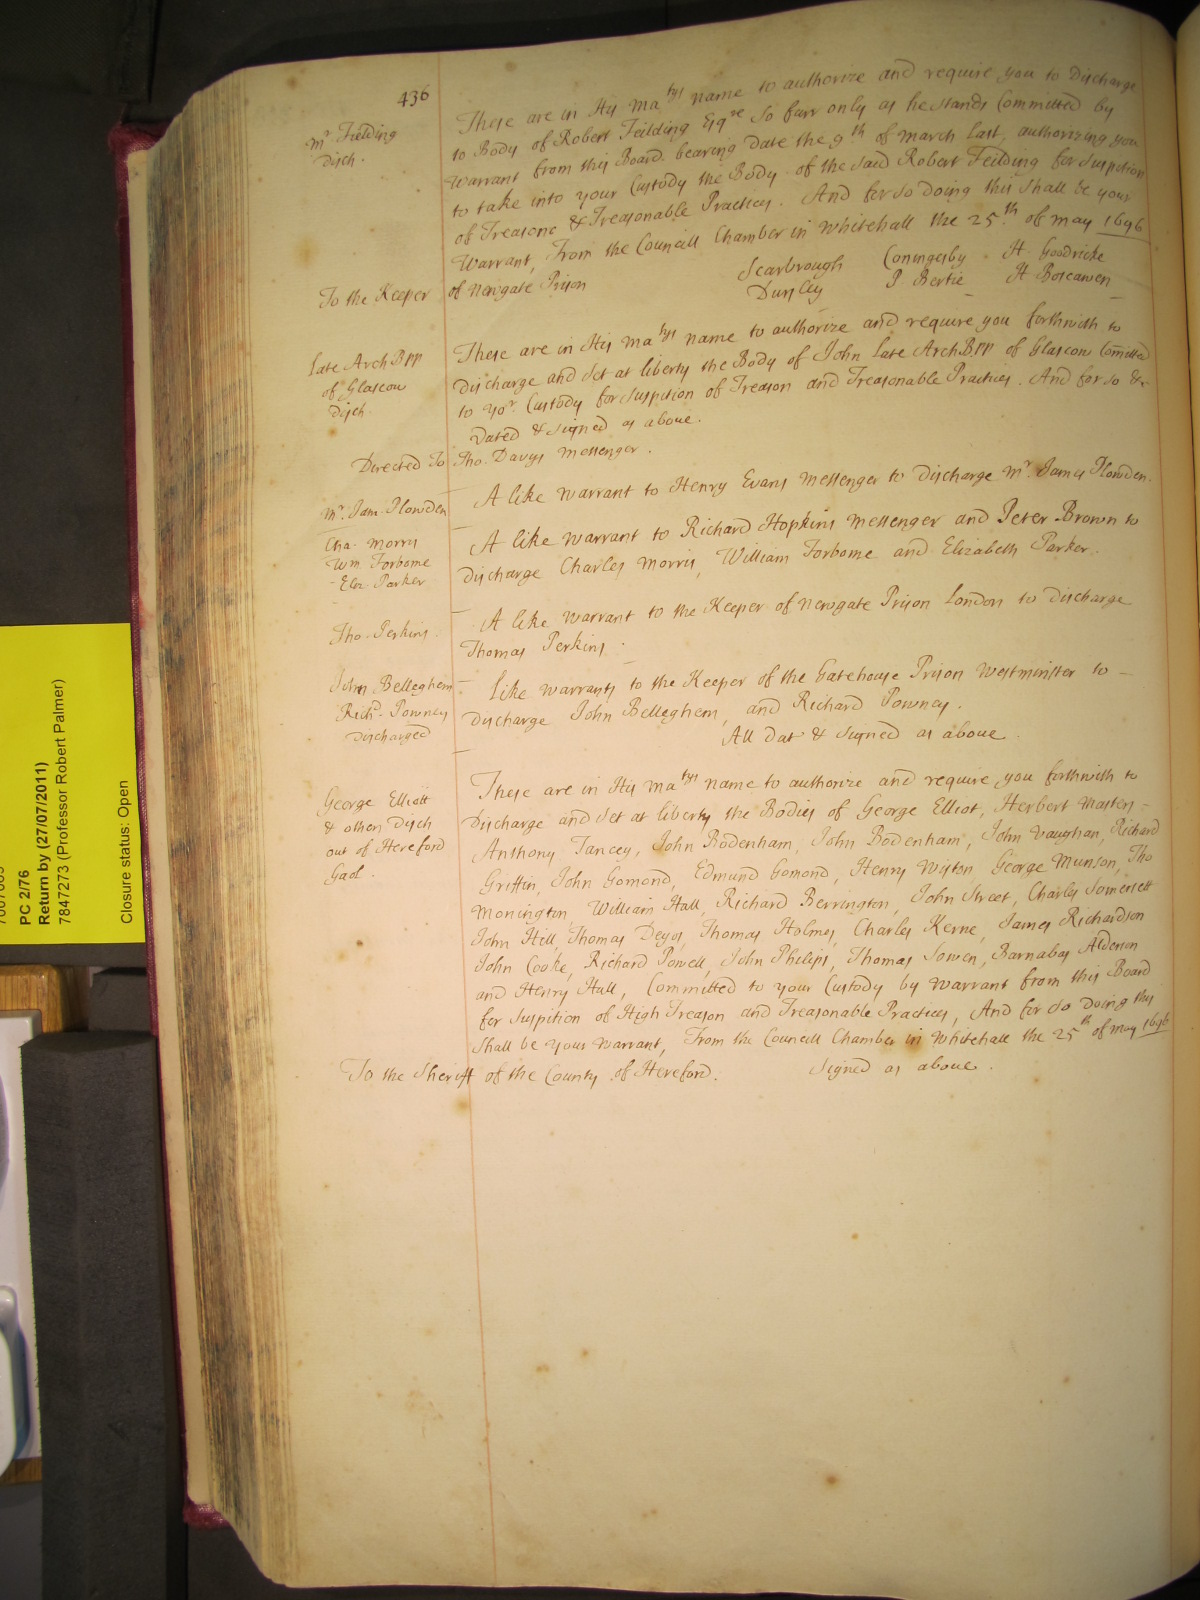 436
Mr. Feilding
Disch.
These are in His Ma tys name to authorize and require you to Discharge
to Body of Robert Feilding Esqre so farr only as he stands Committed by
Warrant from this Board bearing Date the 9th of March last, authorizing you
to take into your Custody the Body of the said Robert Feilding for Suspition
of Treasone & Treasonable Practices. And for so Doing this Shall be your
Warrant, From the Councill Chamber in Whitehall the 25th of May 1696
Scarbrough Coningesby H. Goodricke
To the Keeper of Newgate Prison
Dursley P Bertie H Boscawen
late ArchBpp
of Glascow
Disch.
These are in His Ma tys name to authorize and require you forthwith to
Discharge and set at liberty the Body of John late ArchBpp of Glascow Comitted
to yor. Custody for Suspition of Treason and Treasonable Practices. And for so &c
Dated & signed as above.
Directed To Tho. Davys Messenger.
Mr. Jam. Plowden
A like warrant to Henry Evans Messenger to Discharge Mr. James Plowden.
Cha. Morris
Wm. Forbome
Eliz. Parker
A like warrant to Richard Hopkins Messenger and Peter Brown to
Discharge Charles Morris, William Forbome and Elizabeth Parker.
Tho. Perkins.
A like warrant to the Keeper of Newgate Prison London to Discharge
Thomas Perkins.
John Belleghem
Richd. Powney
Discharged
like warrants to the Keeper of the Gatehouse Prison Westminster to
Discharge John Belleghem, and Richard Powney.
All Dat & signed as above.
George Elliott
& others Disch
out of Hereford
Gaol.
These are in His Ma tys name to authorize and require you forthwith to
Discharge and set at liberty the Bodies of George Elliot, Herbert Masters
Anthony Tancey, John Bodenham, John Bodenham, John Vaughan, Richard
Griffin, John Gomond, Edmund Gomond, Henry Wiston George Munson, Tho
Monington, William Hall, Richard Berrington, John Street, Charles Somersett
John Hill, Thomas Deyos, Thomas Holmes, Charles Kerne, James Richardson
John Cooke, Richard Powell, John Philips, Thomas Sowen, Barnabas Alderson
and Henry Hall, Committed to your Custody by warrant from this Board
for Suspition of High Treason and Treasonable Practices, And for so Doing this
Shall be your Warrant, From the Councill Chamber in Whitehall the 25th of May 1696
To the Sheriff of the County of Hereford. Signed as above.
PC 2/76
Return by (27/07/2011)
7847273 (Professor Robert Palmer)
Closure status: Open